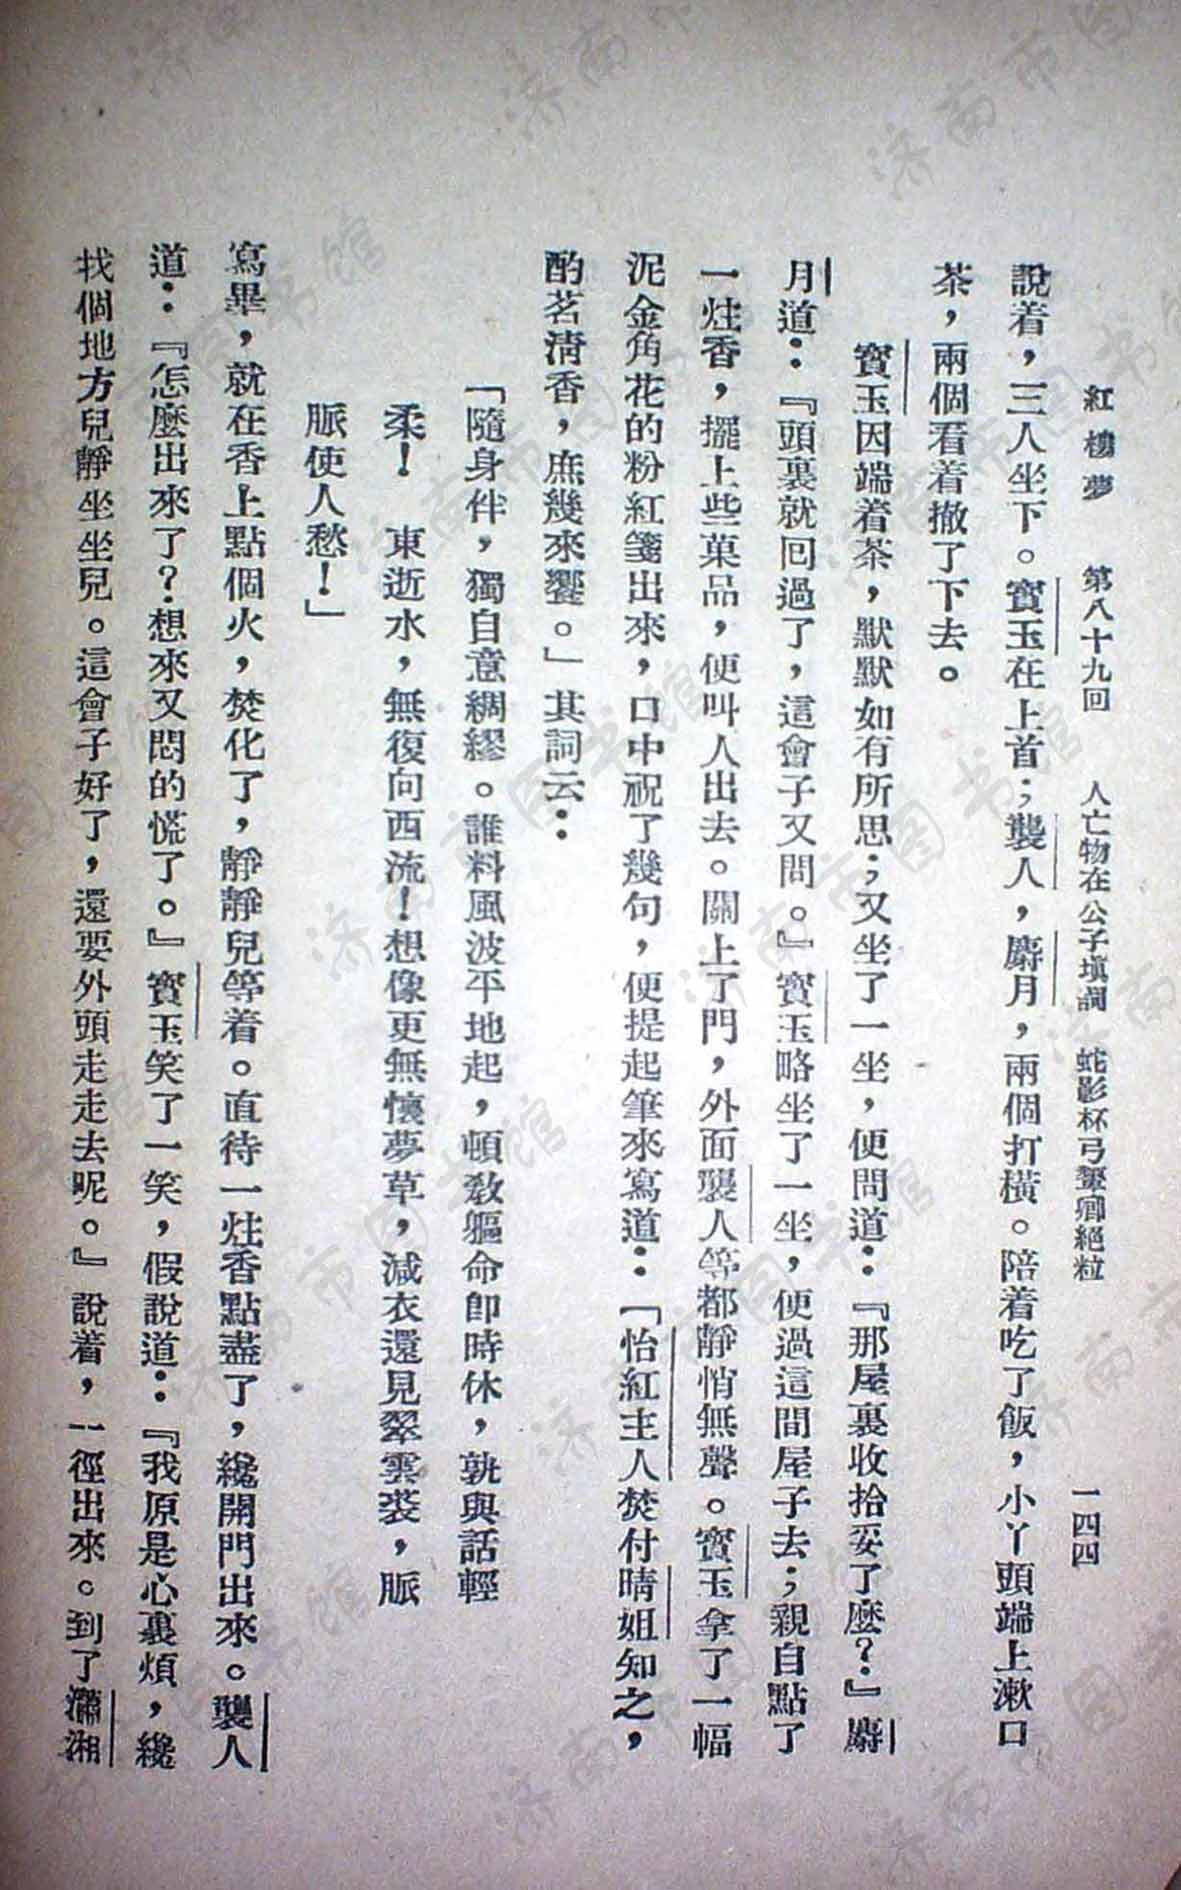 紅樓夢　第八十九回　人亡物在公子填詞　蛇影杯弓顰卿絕粒　一四四
說着，三人坐下。寶玉在上首；襲人，麝月，兩個打橫。陪着吃了飯，小丫頭端上漱口
茶，兩個看着撤了下去。
寶玉因端着茶，默默如有所思；又坐了一坐，便問道：『那屋裏收拾妥了麼？』麝
月道：『頭裏就回過了，這會子又問。』寶玉略坐了一坐，便過這間屋子去；親自點了
一炷香，擺上些菓品，便叫人出去。關上了門，外面襲人等都靜悄無聲。寶玉拿了一幅
泥金角花的粉紅箋出來，口中祝了幾句，便提起筆來寫道：「怡紅主人焚付晴姐知之，
酌茗清香，庶幾來饗。」其詞云：
「隨身伴，獨自意綢繆。誰料風波平地起，頓敎軀命卽時休，孰與話輕
柔！　東逝水，無復向西流！想像更無懷夢草，減衣還見翠雲裘，脈
脈使人愁！」
寫畢，就在香上點個火，焚化了，靜靜兒等着。直待一炷香點盡了，纔開門出來。襲人
道：『怎麼出來了？想來又悶的慌了。』寶玉笑了一笑，假說道：『我原是心裏煩，纔
找個地方兒靜坐坐兒。這會子好了，還要外頭走走去呢。』說着，一徑出來。到了瀟湘
济南市图书馆